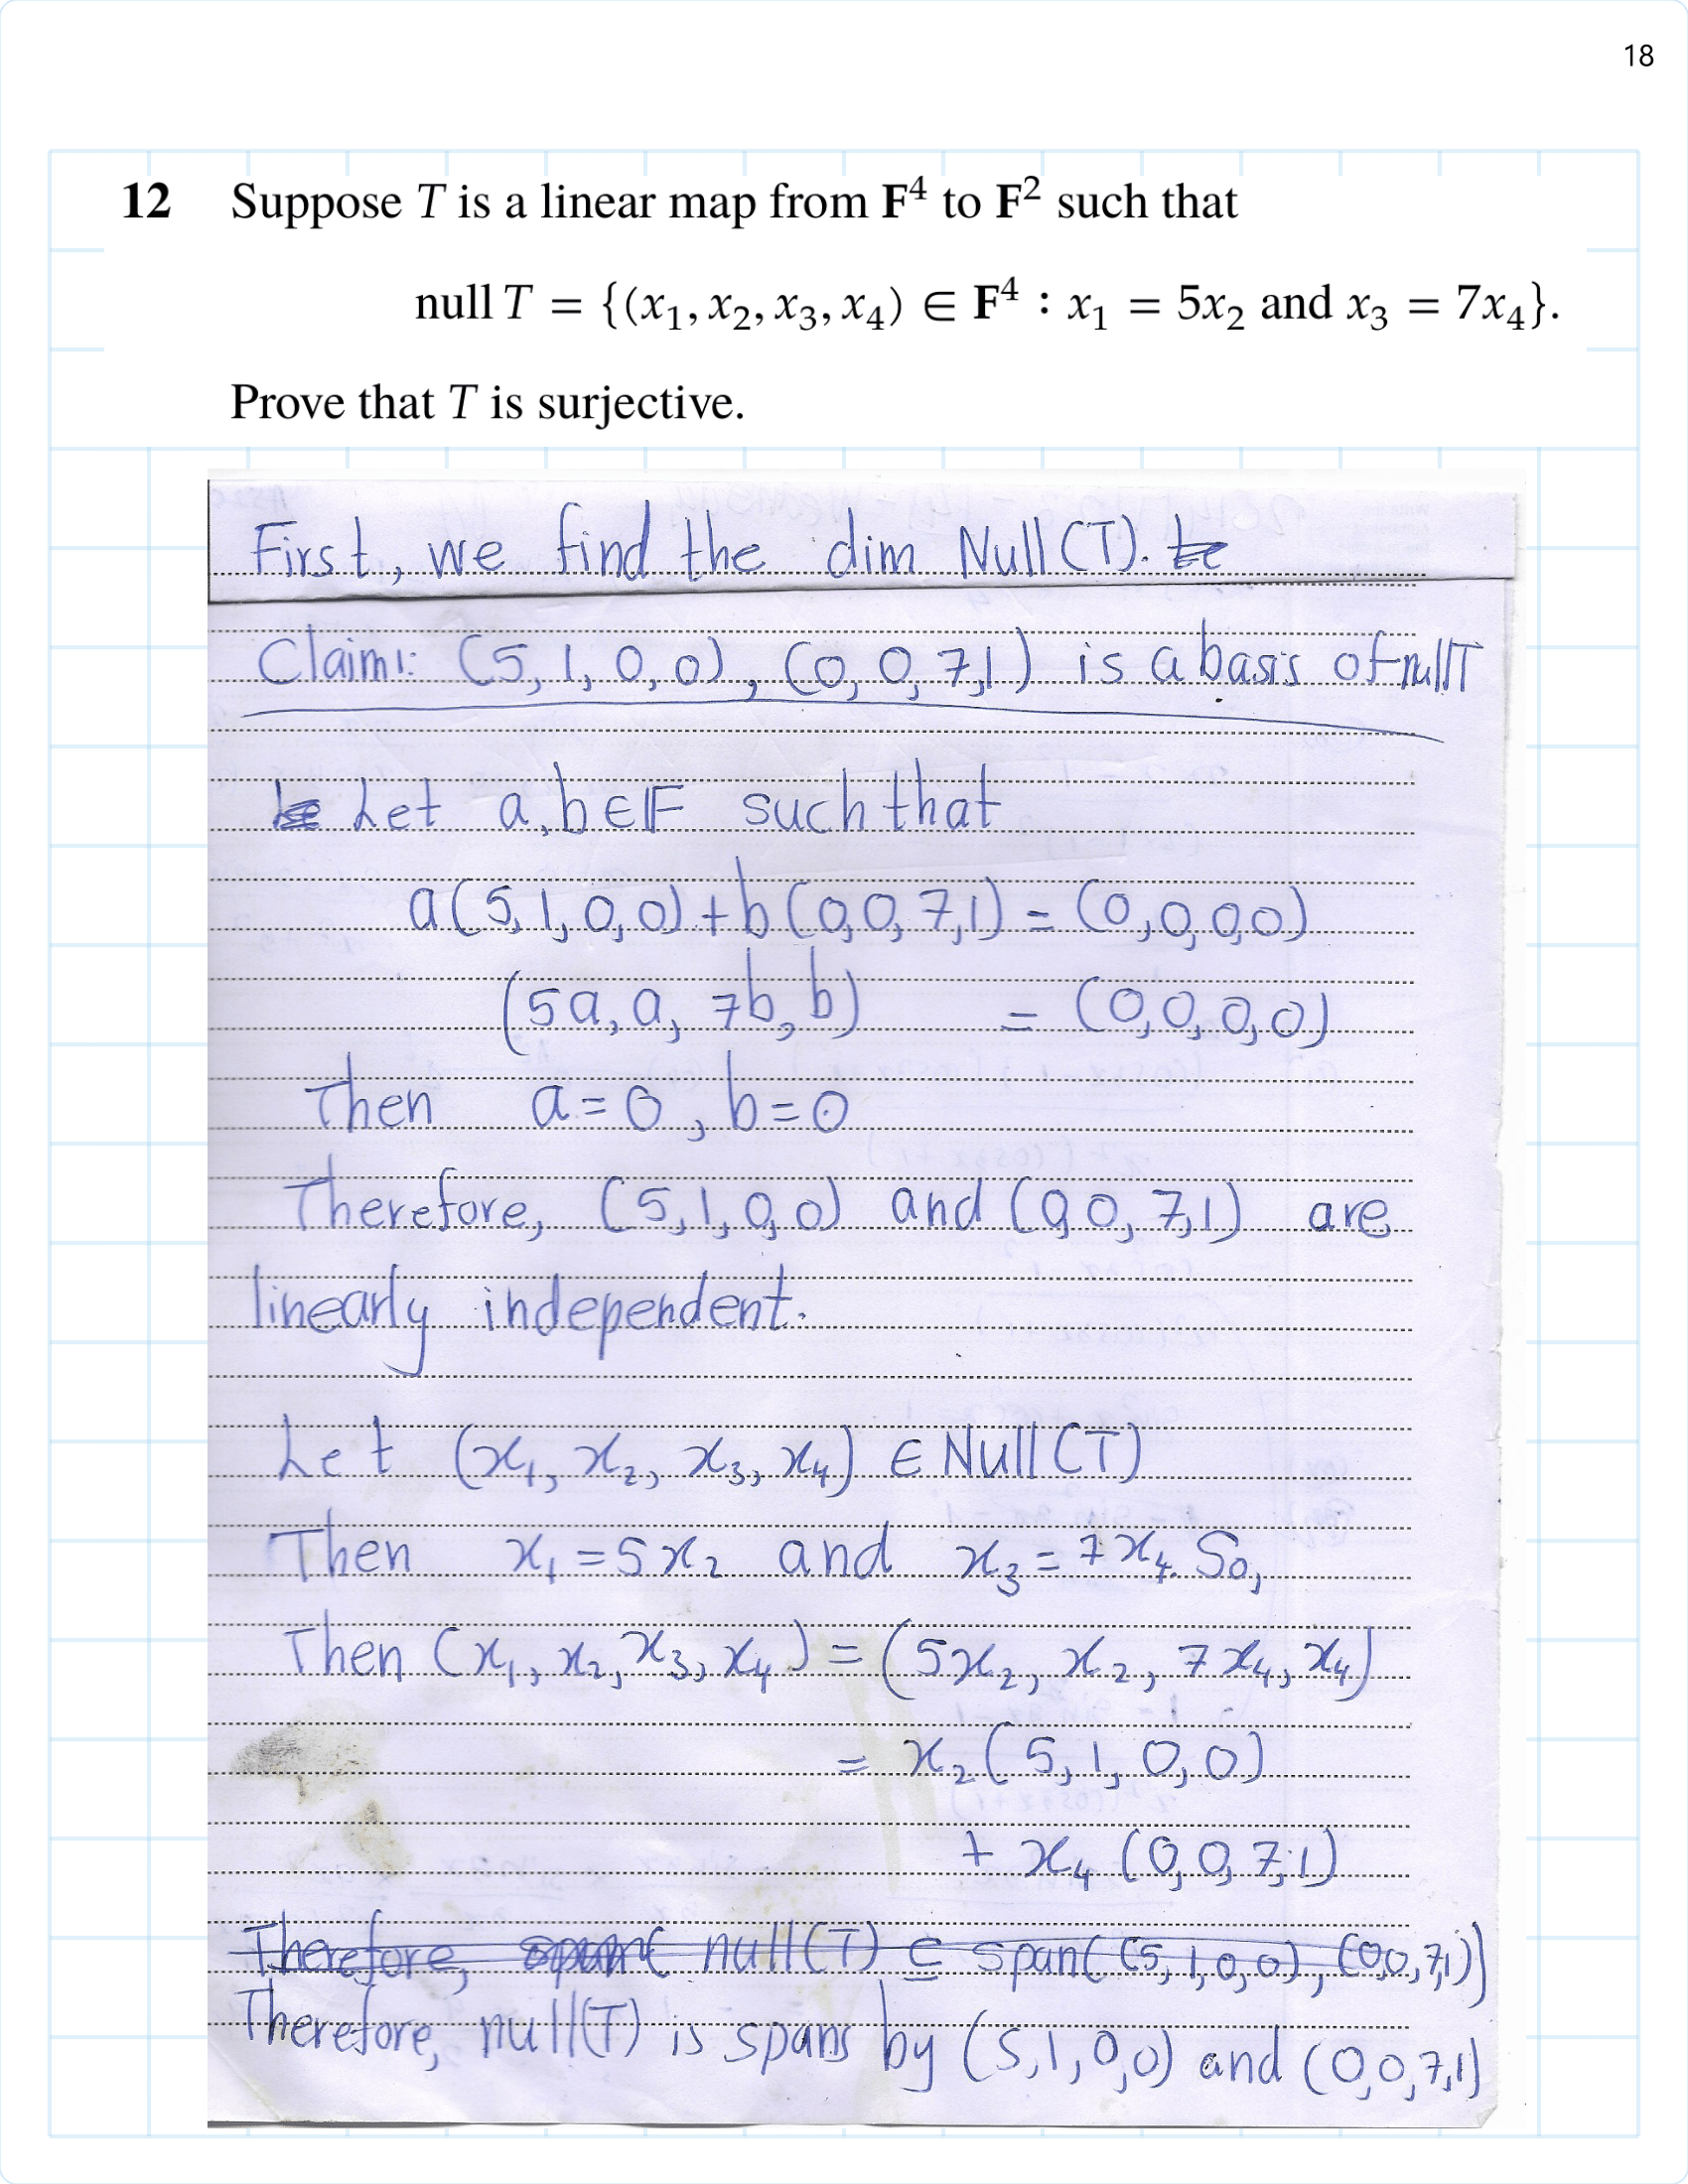 18
12 Suppose T is a linear map from F⁴ to F² such that
null T = {(x₁, x₂, x₃, x₄) ∈ F⁴ : x₁ = 5x₂ and x₃ = 7x₄}.
Prove that T is surjective.
First, we find the dim Null(T).
Claim 1: (5, 1, 0, 0), (0, 0, 7, 1) is a basis of null T
Let a, b ∈ F such that
a(5, 1, 0, 0) + b(0, 0, 7, 1) = (0, 0, 0, 0)
(5a, a, 7b, b) = (0, 0, 0, 0)
Then a = 0, b = 0
Therefore, (5, 1, 0, 0) and (0, 0, 7, 1) are
linearly independent.
Let (x₁, x₂, x₃, x₄) ∈ Null(T)
Then x₁ = 5x₂ and x₃ = 7x₄. So,
Then (x₁, x₂, x₃, x₄) = (5x₂, x₂, 7x₄, x₄)
= x₂(5, 1, 0, 0)
+ x₄(0, 0, 7, 1)
Therefore, span( null(T) ⊆ span((5, 1, 0, 0), (0, 0, 7, 1))
Therefore, null(T) is spans by (5, 1, 0, 0) and (0, 0, 7, 1)